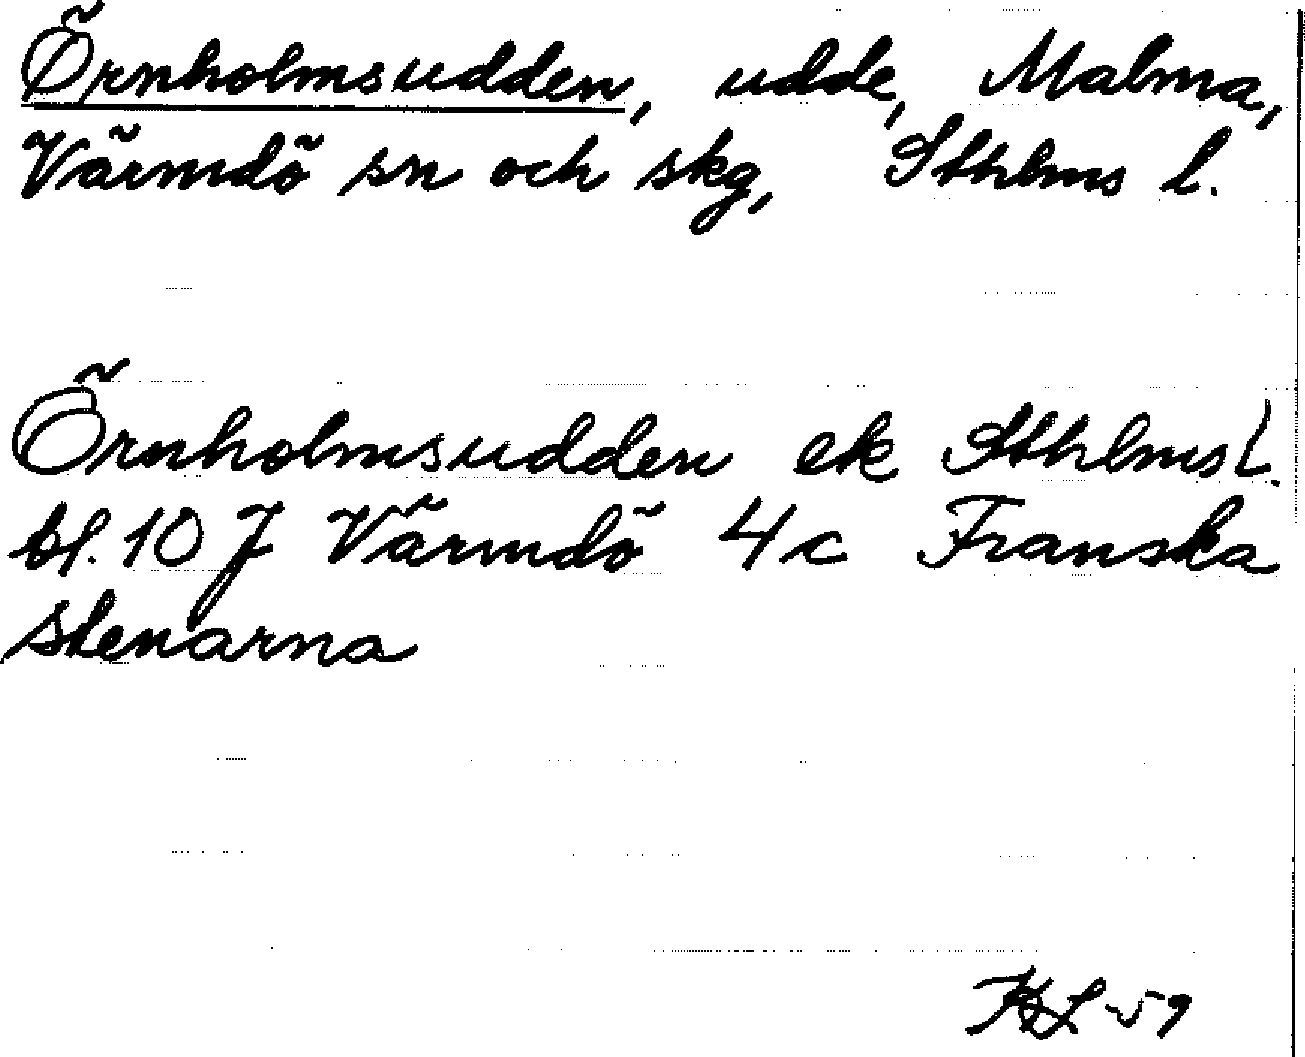 Örnholmsudden, udde, Malma,
Värmdö sn och skg, Sthlms l.
Örnholmsudden ek Sthlms l.
bl. 10 J Värmdö 4c Franska
stenarna
-59